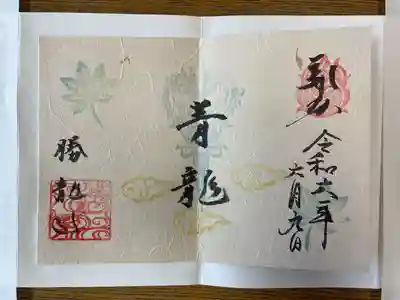 令和六年
六月九日
青龍
勝龍寺